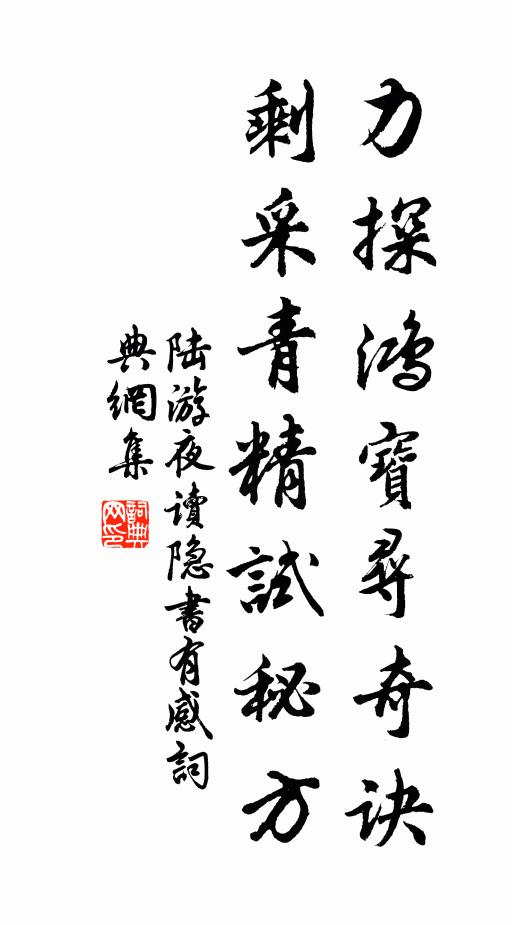 力探鴻寶尋奇诀
剩采青精試秘方
陆游夜读隐書有感詞
典網集
詞典网印